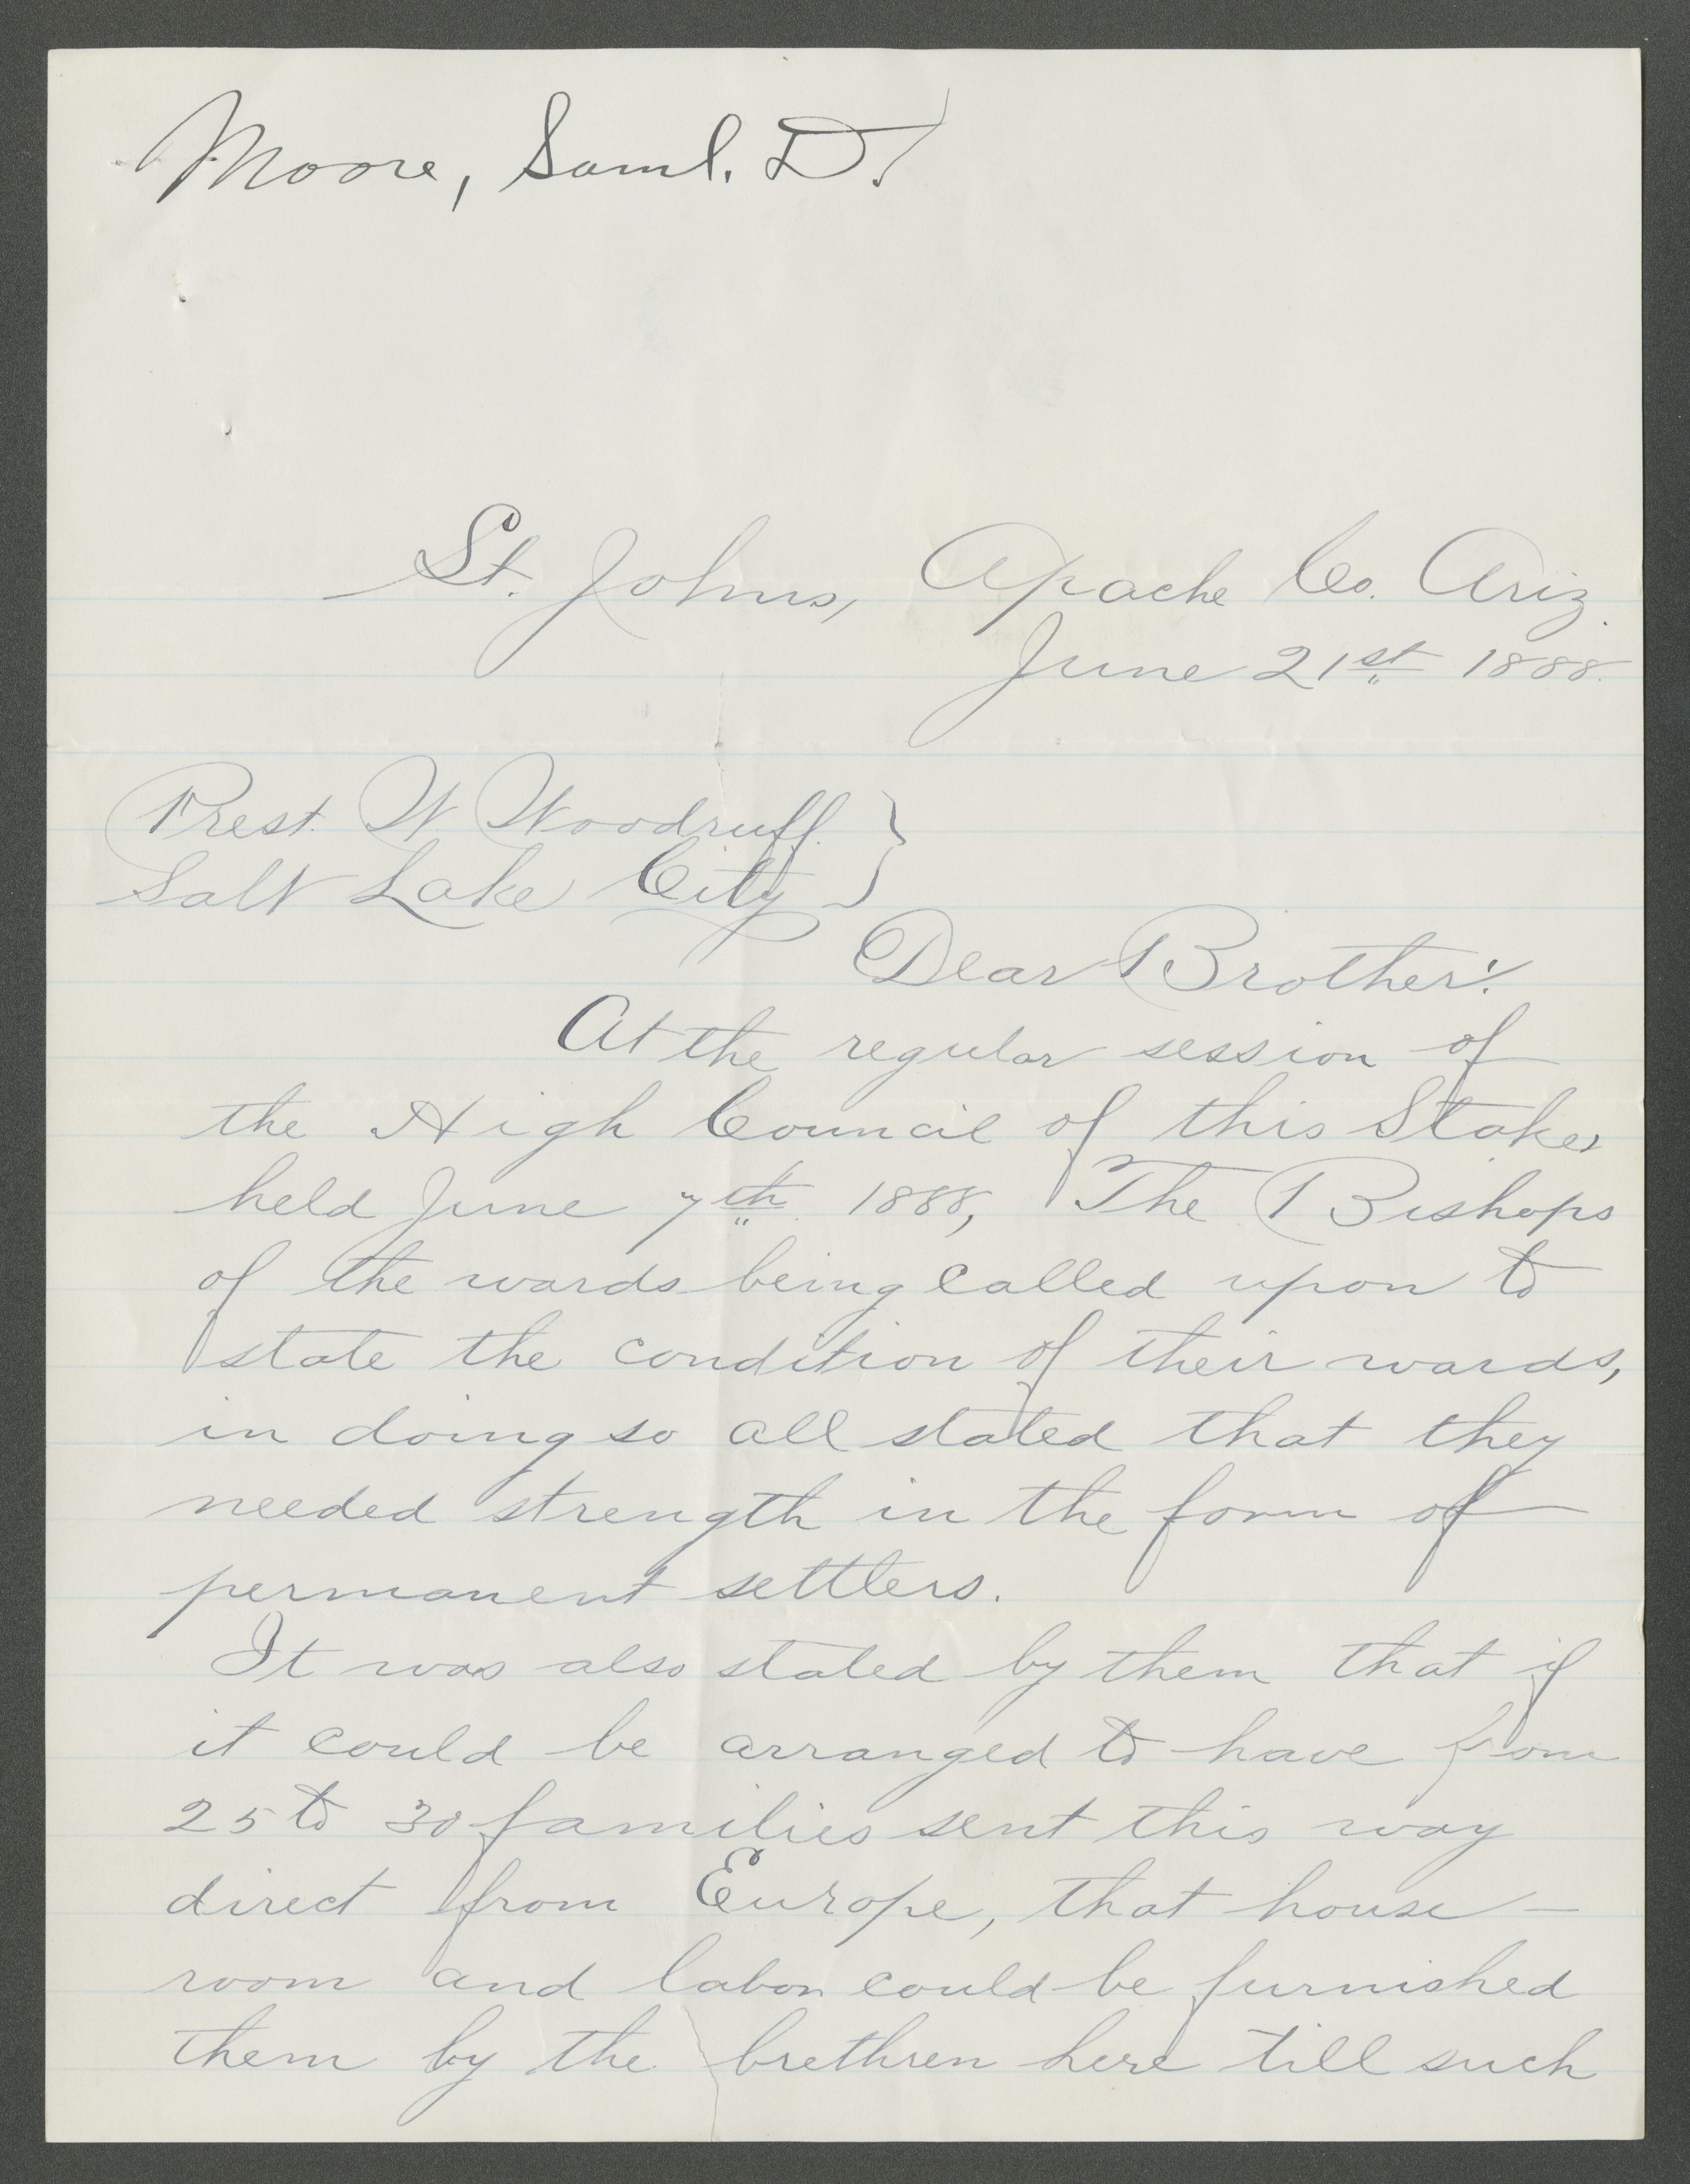 Moore, Saml. D.
St. Johns, Apache Co. Ariz.
June 21st 1888.
Prest. W. Woodruff. }
Salt Lake City }
Dear Brother:
At the regular session of
the High Council of this Stake,
held June 7th 1888, The Bishops
of the wards being called upon to
state the condition of their wards,
in doing so all stated that they
needed strength in the form of
permanent settlers.
It was also stated by them that if
it could be arranged to have from
25 to 30 families sent this way
direct from Europe, that house-
room and labor could be furnished
them by the brethren here till such